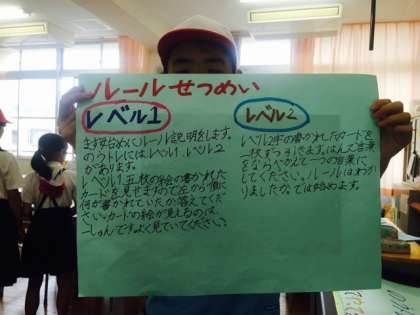 ルールせつめい
レベル1
まず始めにルール説明をします。
のうトレにはレベル1、レベル2
があります。
レベル1、五枚の絵の書かれた
カードを見せますので左から順に
何が書かれていたか答えてくだ
さい。カードの絵が見えるのは
一しゅんですよく見ていてください。
レベル2
レベル2、字の書かれたカードを
一枚ずつ引きます。はんた言葉
をうかべて一つの言葉に
してください。ルールはわか
りましたか。では始めます。